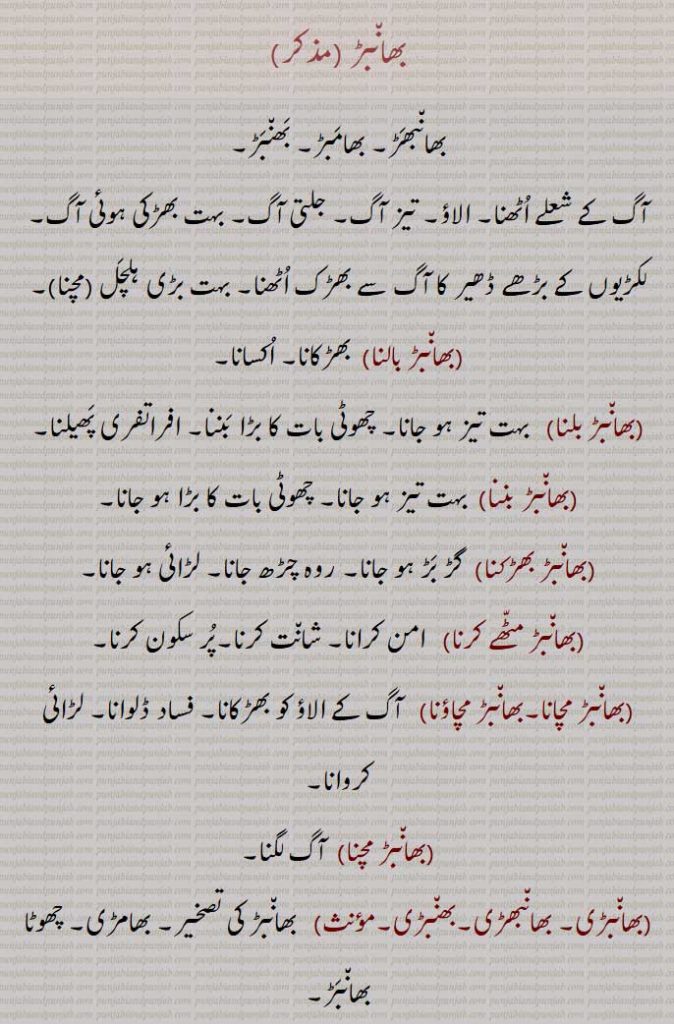 بھانّبڑ (مذکر)
بھانّبھَڑ۔ بھامَبڑ۔ بَھنّبَڑ۔
آگ کے شعلے اُٹھنا۔ الاؤ۔ تیز آگ۔ جلتی آگ۔ بہت بھڑکی ہوئی آگ۔
لکڑیوں کے بڑھے ڈھیر کا آگ سے بھڑک اُٹھنا۔ بہت بڑی ہلچَل (مچنا)۔
(بھانّبڑ بالنا) بھڑکانا۔ اُکسانا۔
(بھانّبڑ بلنا) بہت تیز ہو جانا۔ چھوٹی بات کا بڑا بَننا۔ افراتفری پَھیلنا۔
(بھانّبڑ بننا) بہت تیز ہو جانا۔ چھوٹی بات کا بڑا ہو جانا۔
(بھانّبڑ بھڑکنا) گڑ بَڑ ہو جانا۔ روہ چڑھ جانا۔ لڑائی ہو جانا۔
(بھانّبڑ مٹّھے کرنا) امن کرانا۔ شانّت کرنا۔پُر سکون کرنا۔
(بھانّبڑ مچانا۔بھانّبڑ مچاؤنا) آگ کے الاؤ کو بھڑکانا۔ فساد ڈلوانا۔ لڑائی
کروانا۔
(بھانّبڑ مچنا) آگ لگنا۔
(بھانّبڑی۔ بھانّبھڑی۔بھنّبڑی۔مؤنث) بھانّبڑ کی تصخیر۔ بھامڑی۔ چھوٹا
بھانّبَڑ۔